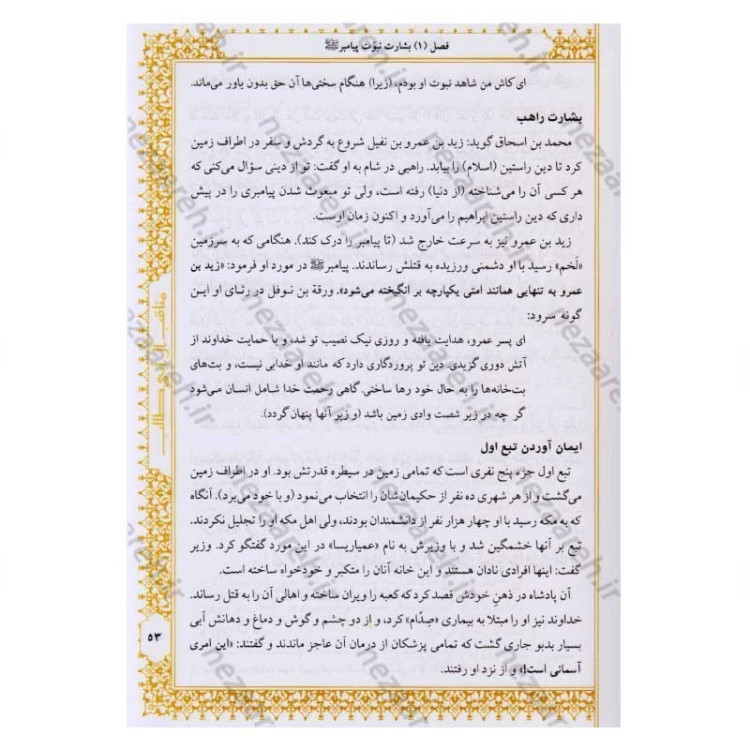 فصل (۱) بشارت نبوّت پیامبرﷺ
ای کاش من شاهد نبوت او بودم، (زیرا) هنگام سختی‌ها آن حق بدون یاور می‌ماند.
بشارت راهب
محمد بن اسحاق گوید: زید بن عمرو بن نفیل شروع به گردش و سفر در اطراف زمین
کرد تا دین راستین (اسلام) را بیابد. راهبی در شام به او گفت: تو از دینی سؤال می‌کنی که
هر کسی آن را می‌شناخته (از دنیا) رفته است، ولی تو مبعوث شدن پیامبری را در پیش
داری که دین راستین ابراهیم را می‌آورد و اکنون زمان اوست.
زید بن عمرو نیز به سرعت خارج شد (تا پیامبر را درک کند). هنگامی که به سرزمین
«لَخم» رسید با او دشمنی ورزیده به قتلش رساندند. پیامبرﷺ در مورد او فرمود: «زید بن
عمرو به تنهایی همانند امتی یکپارچه بر انگیخته می‌شود». ورقة بن نوفل در رثای او این
گونه سرود:
ای پسر عمرو، هدایت یافته و روزی نیک نصیب تو شد، و با حمایت خداوند از
آتش دوری گزیدی. دین تو پروردگاری دارد که مانند او خدایی نیست، و بت‌های
بت‌خانه‌ها را به حال خود رها ساختی. گاهی رحمت خدا شامل انسان می‌شود
گر چه در زیر شصت وادی زمین باشد (و زیر آنها پنهان گردد).
ایمان آوردن تبع اول
تبع اول جزء پنج نفری است که تمامی زمین در سیطره قدرتش بود. او در اطراف زمین
می‌گشت و از هر شهری ده نفر از حکیمان‌شان را انتخاب می‌نمود (و با خود می‌برد). آنگاه
که به مکه رسید با او چهار هزار نفر از دانشمندان بودند، ولی اهل مکه او را تجلیل نکردند.
تبع بر آنها خشمگین شد و با وزیرش به نام «عمیاریسا» در این مورد گفتگو کرد. وزیر
گفت: اینها افرادی نادان هستند و این خانه آنان را متکبر و خودخواه ساخته است.
آن پادشاه در ذهنِ خودش قصد کرد که کعبه را ویران ساخته و اهالی آن را به قتل رساند.
خداوند نیز او را مبتلا به بیماری «صِدّام» کرد، و از دو چشم و گوش و دماغ و دهانش آبی
بسیار بدبو جاری گشت که تمامی پزشکان از درمان آن عاجز ماندند و گفتند: «این امری
آسمانی است!» و از نزد او رفتند.
۵۳
nezaareh.ir